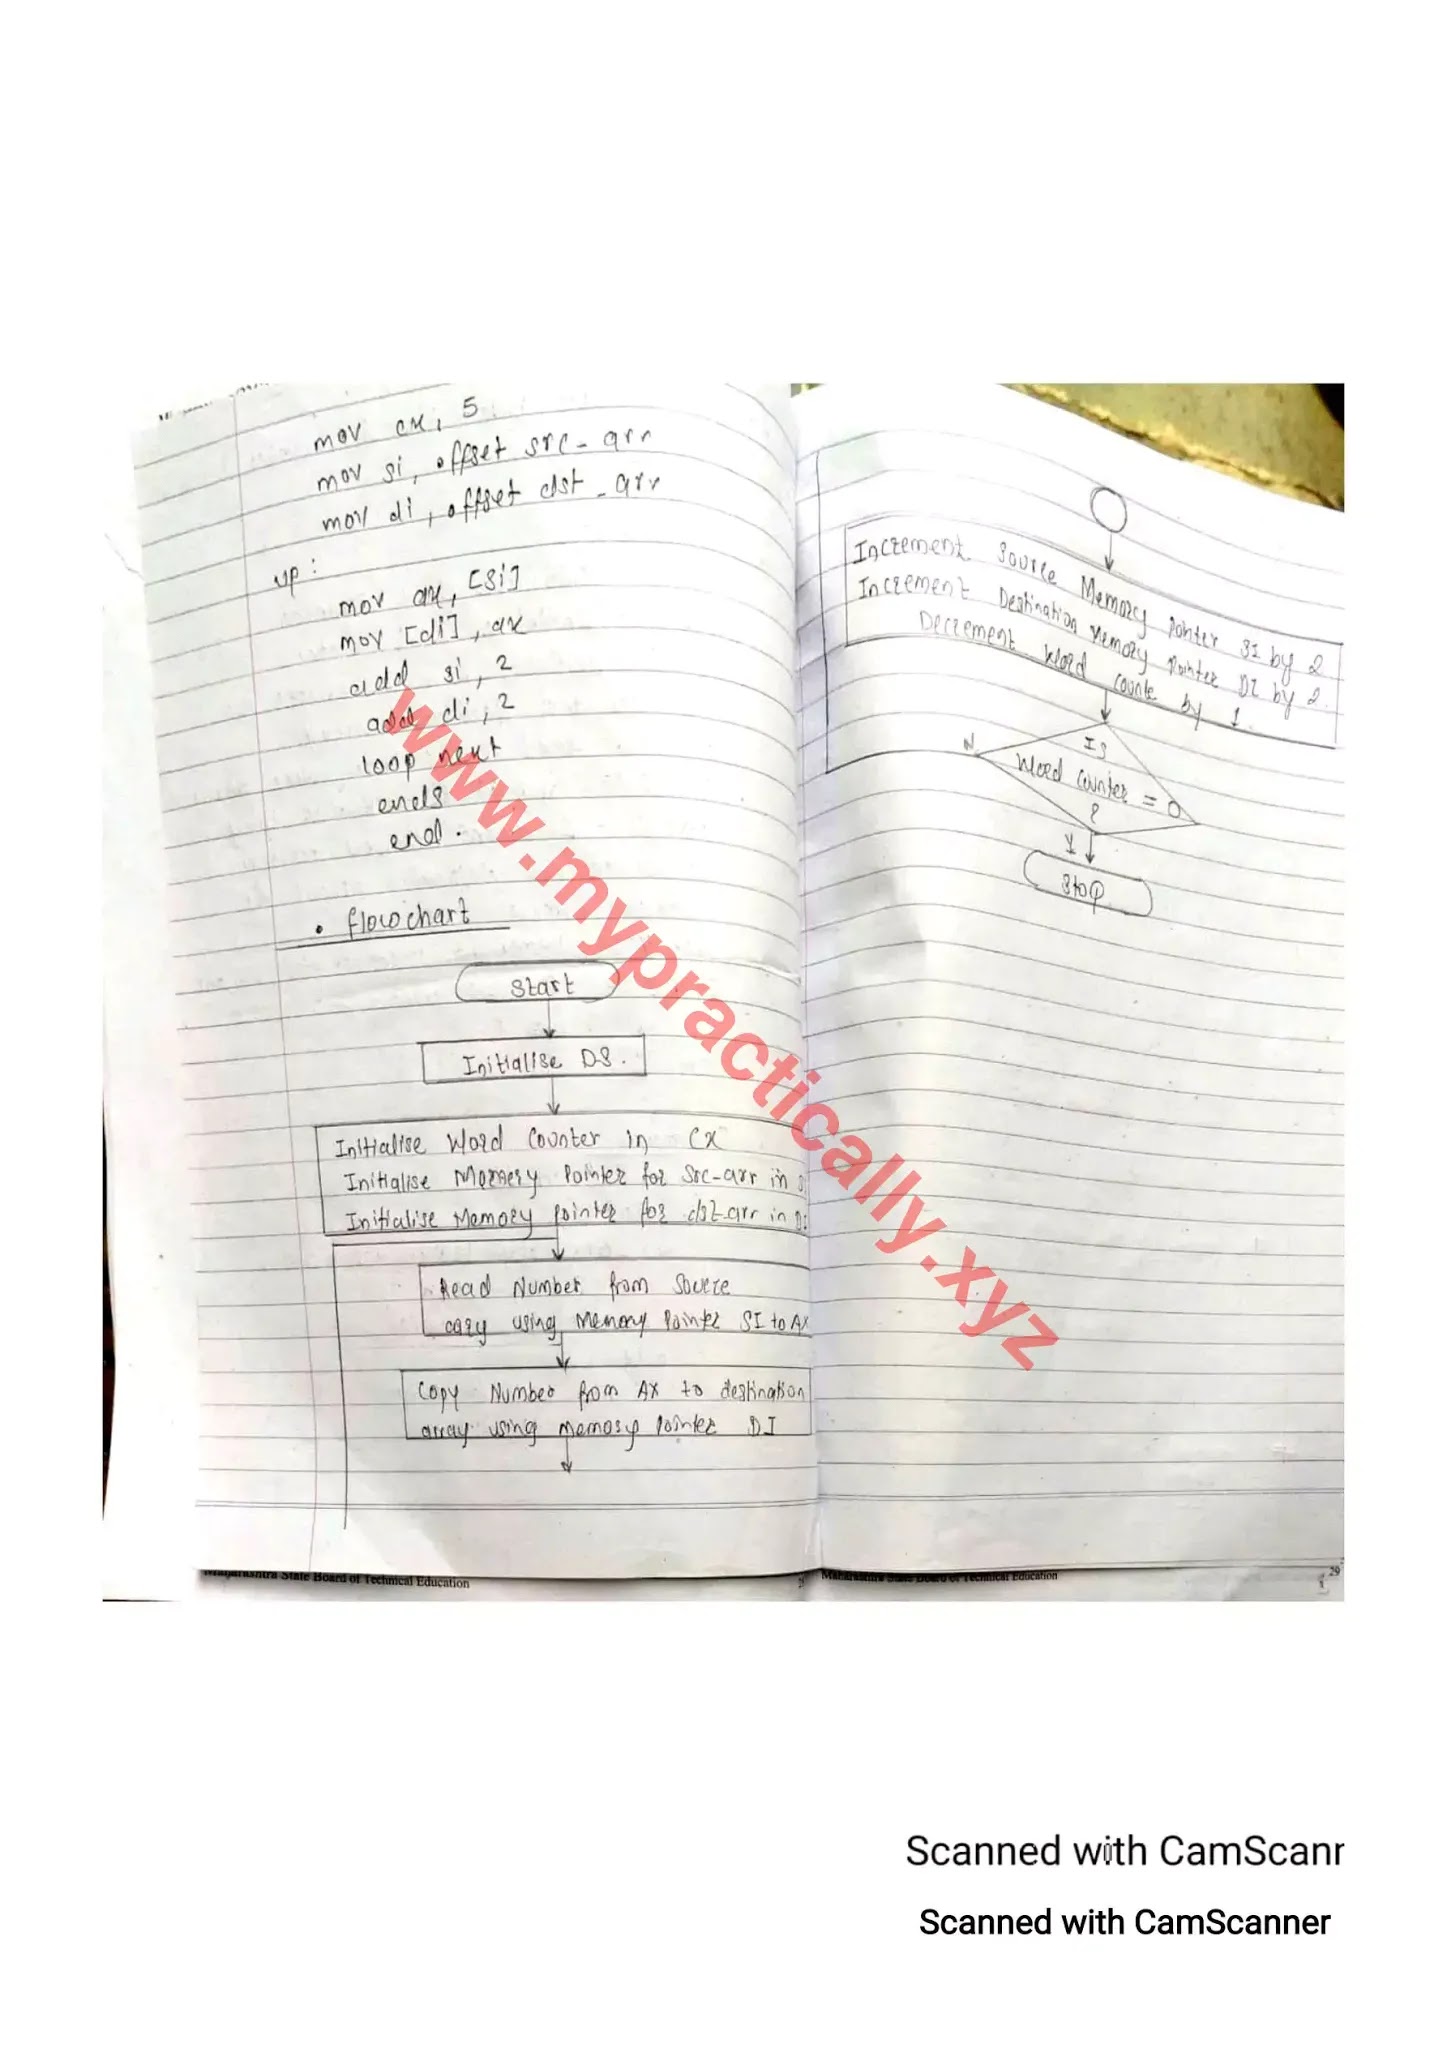 mov cx, 5
mov si, offset src-arr
mov di, offset dst-arr
up:
mov ax, [si]
mov [di], ax
add si, 2
add di, 2
loop next
ends
end.
• flowchart
Start
Initialise DS.
Initialise Word Counter in CX
Initialise Memory Pointer for Src-arr in
Initialise Memory Pointer for dst-arr in DI
Read Number from Source
using Memory Pointer SI to AX
Copy Number from AX to destination
array using memory pointer DI
Maharashtra State Board of Technical Education
Increment Source Memory Pointer SI by 2
Increment Destination Memory Pointer DI by 2.
Decrement Word counte by 1.
Is
N
Word Counter = 0
?
Y
Stop
Maharashtra State Board of Technical Education
29
www.mypractically.xyz
Scanned with CamScanr
Scanned with CamScanner